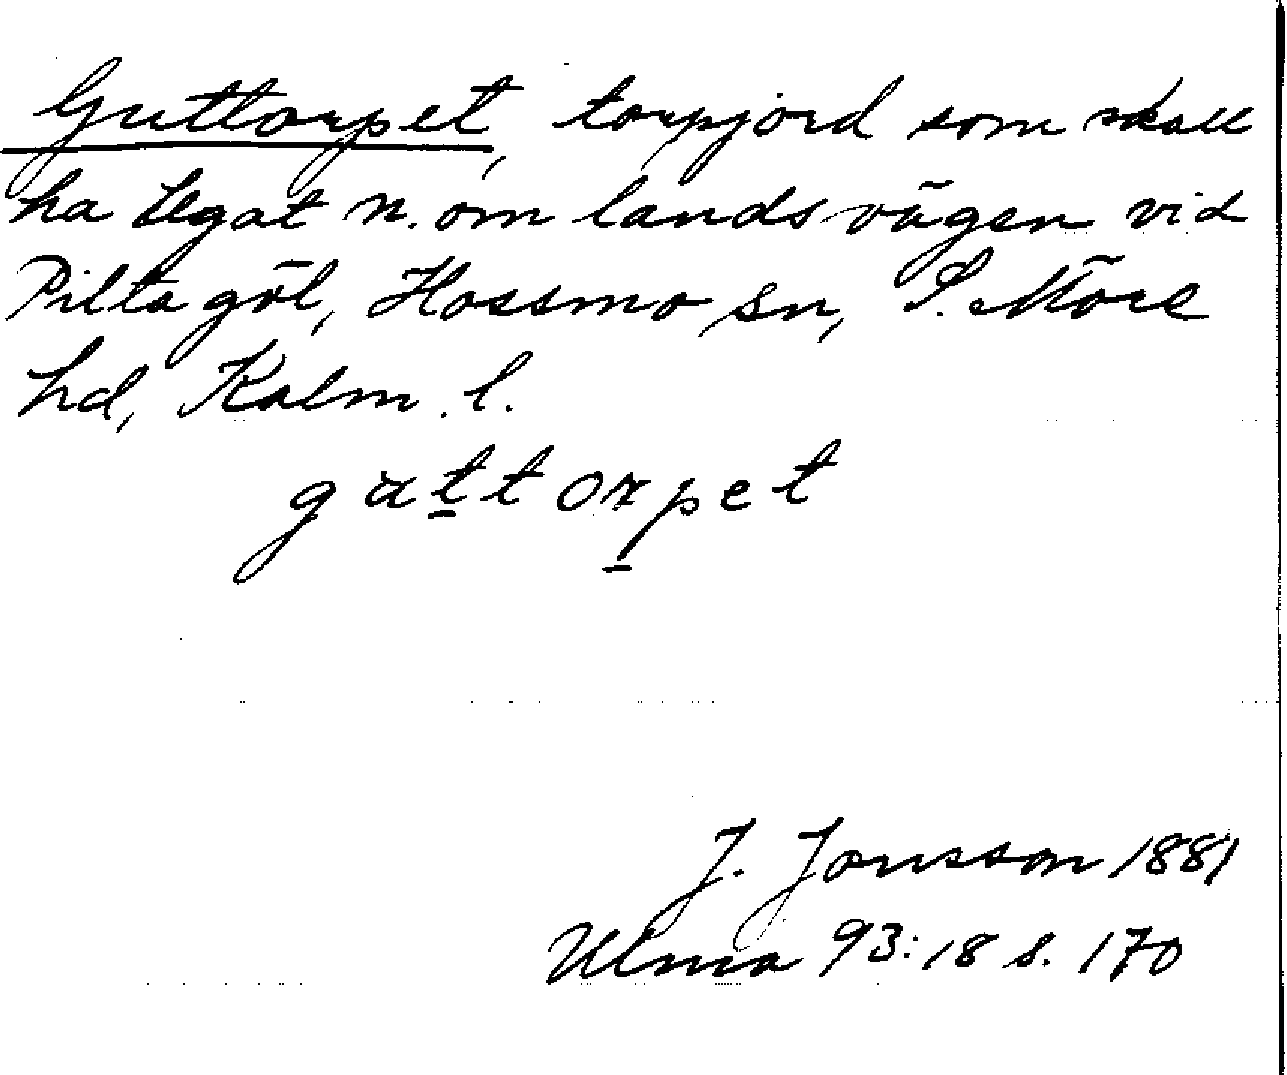 Guttorpet, torpjord som skall
ha legat n. om landsvägen vid
Pilta göl, Hossmo sn, S. Möre
hd, Kalm. l.
gattorpet
J. Jonsson 1881
Ulma 93:18 s. 170